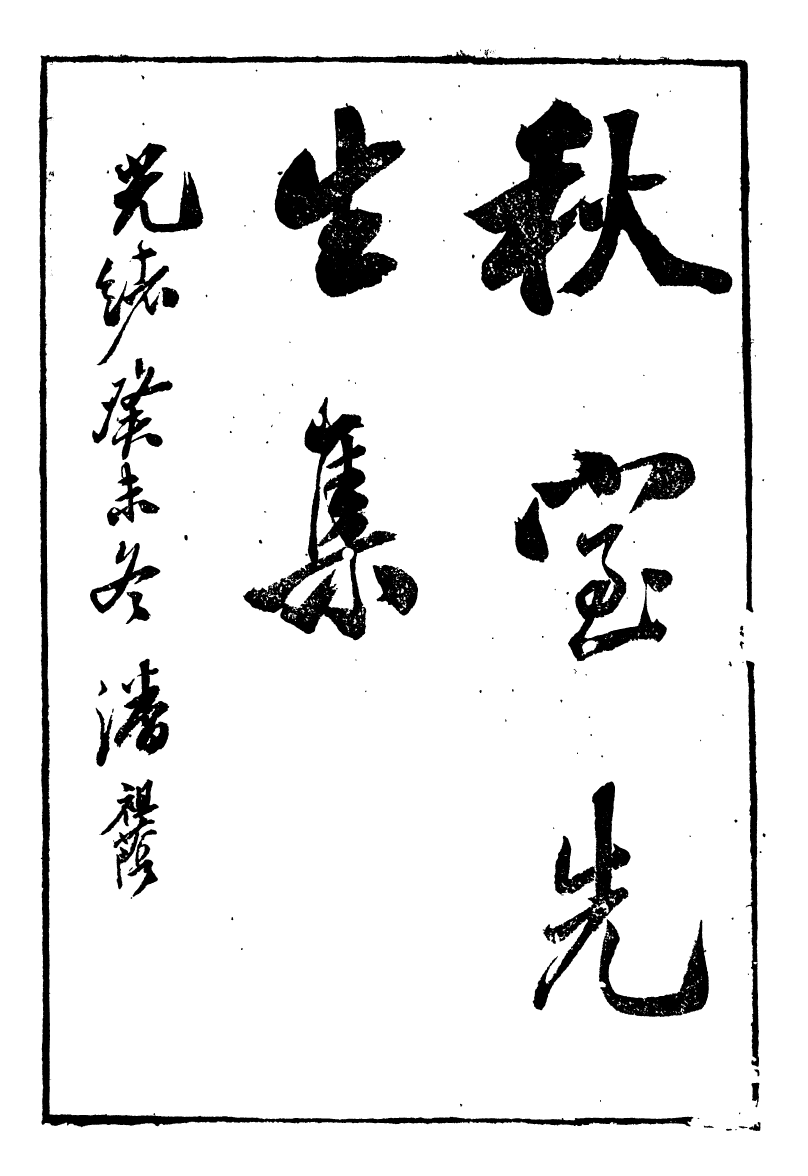 秋室先
生集
光緒癸未冬潘祖蔭